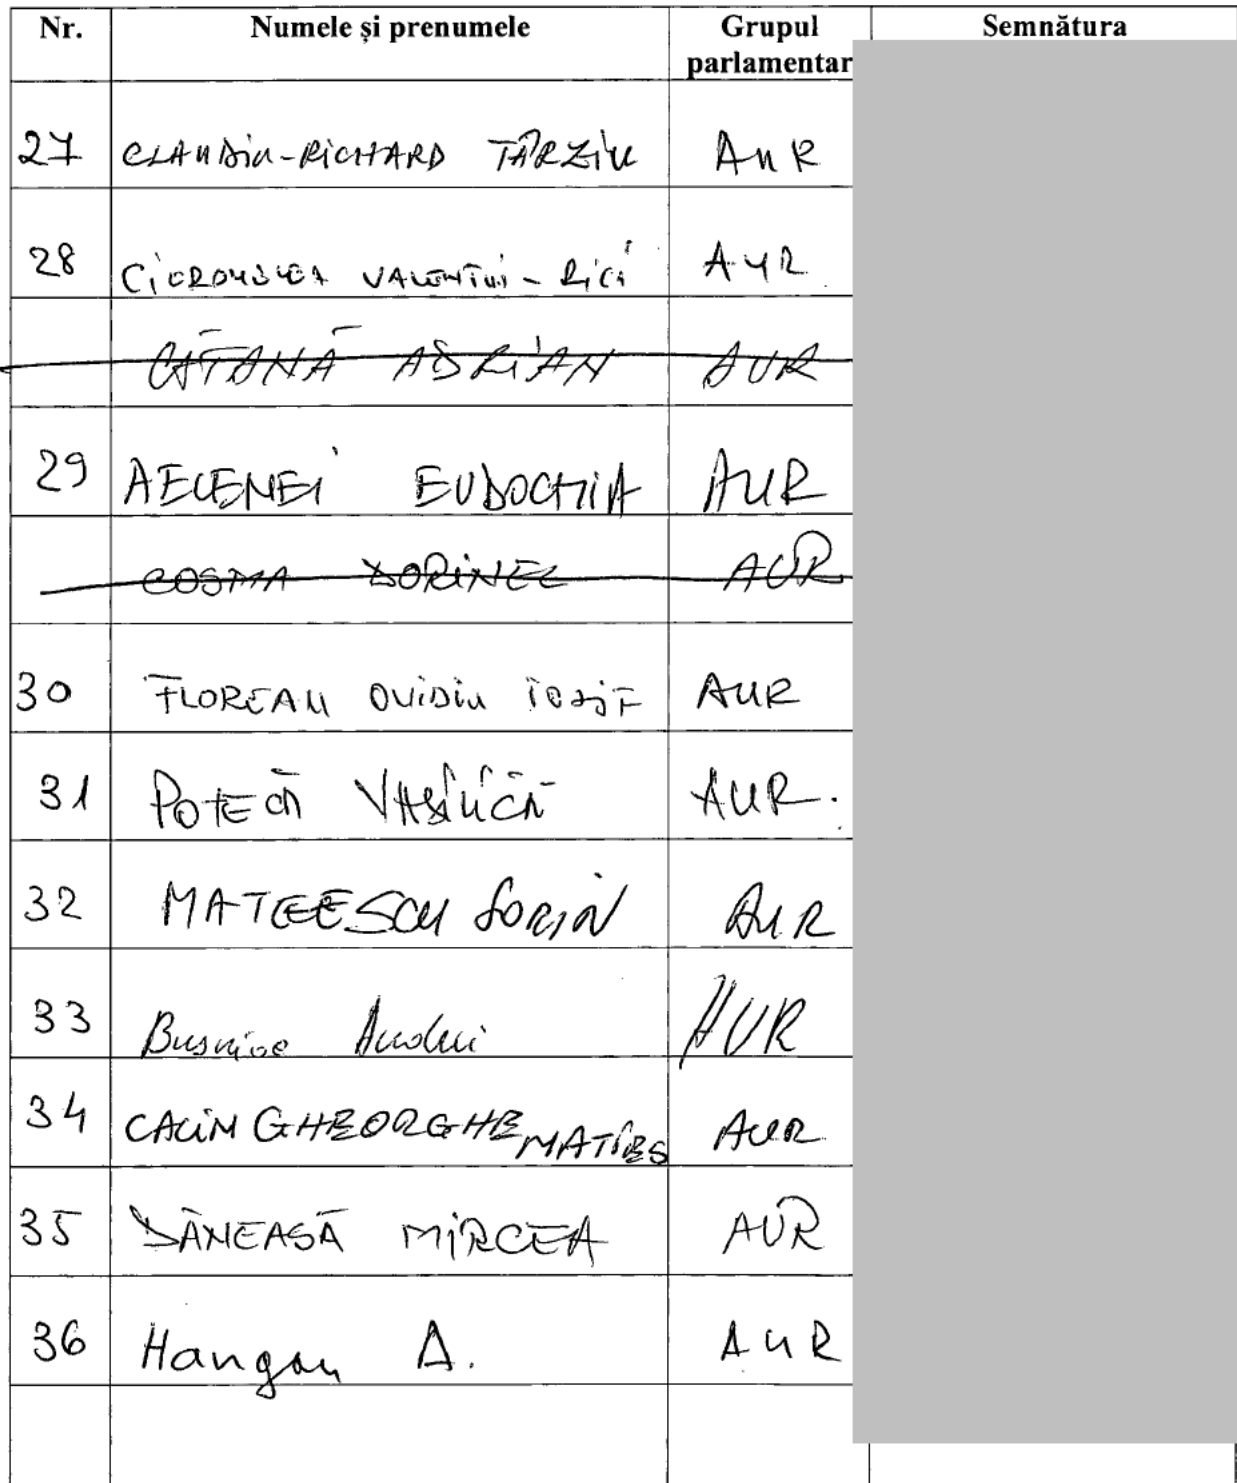 Nr. Numele și prenumele Grupul parlamentar Semnătura
27 CLAUDIU-RICHARD TÂRZIU AUR
28 VALENTIN - RICI AUR
CĂTANĂ ADRIAN AUR
29 AELENEI EUDOCHIA AUR
COSMA DORINEL AUR
30 FLOREAN OVIDIU IOSIF AUR
31 POTECĂ VASILICĂ AUR.
32 MATEESCU SORIN AUR
33 Andrei AUR
34 CALIN GHEORGHE MATIES AUR
35 DĂNEASĂ MIRCEA AUR
36 Hangan A. AUR